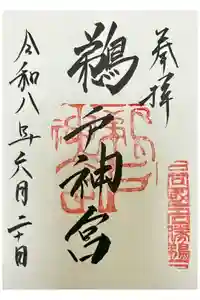 奉拝
鵜戸神宮
令和八年六月二十日